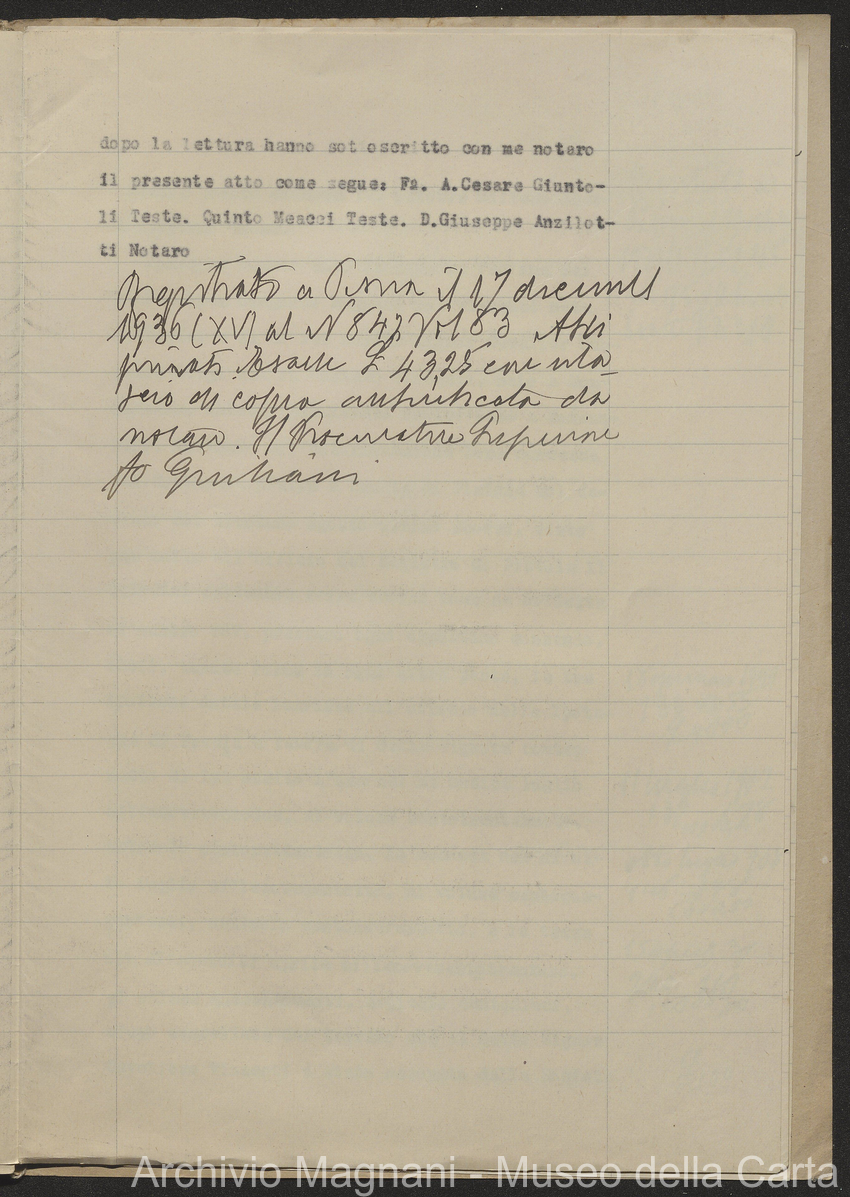 dopo la lettura hanno sottoscritto con me notaro
il presente atto come segue: Fº. A.Cesare Giunto-
li Teste. Quinto Meacci Teste. D.Giuseppe Anzilot-
ti Notaro
Registrato a il 17 dicembre
1936 (XV) al N 847 Vol 83 Atti
privati. Esatte £ 43,25 con rila-
scio di copia autenticata da
notaio. Il Procuratore Superiore
fo Giuliani
Archivio Magnani - Museo della Carta